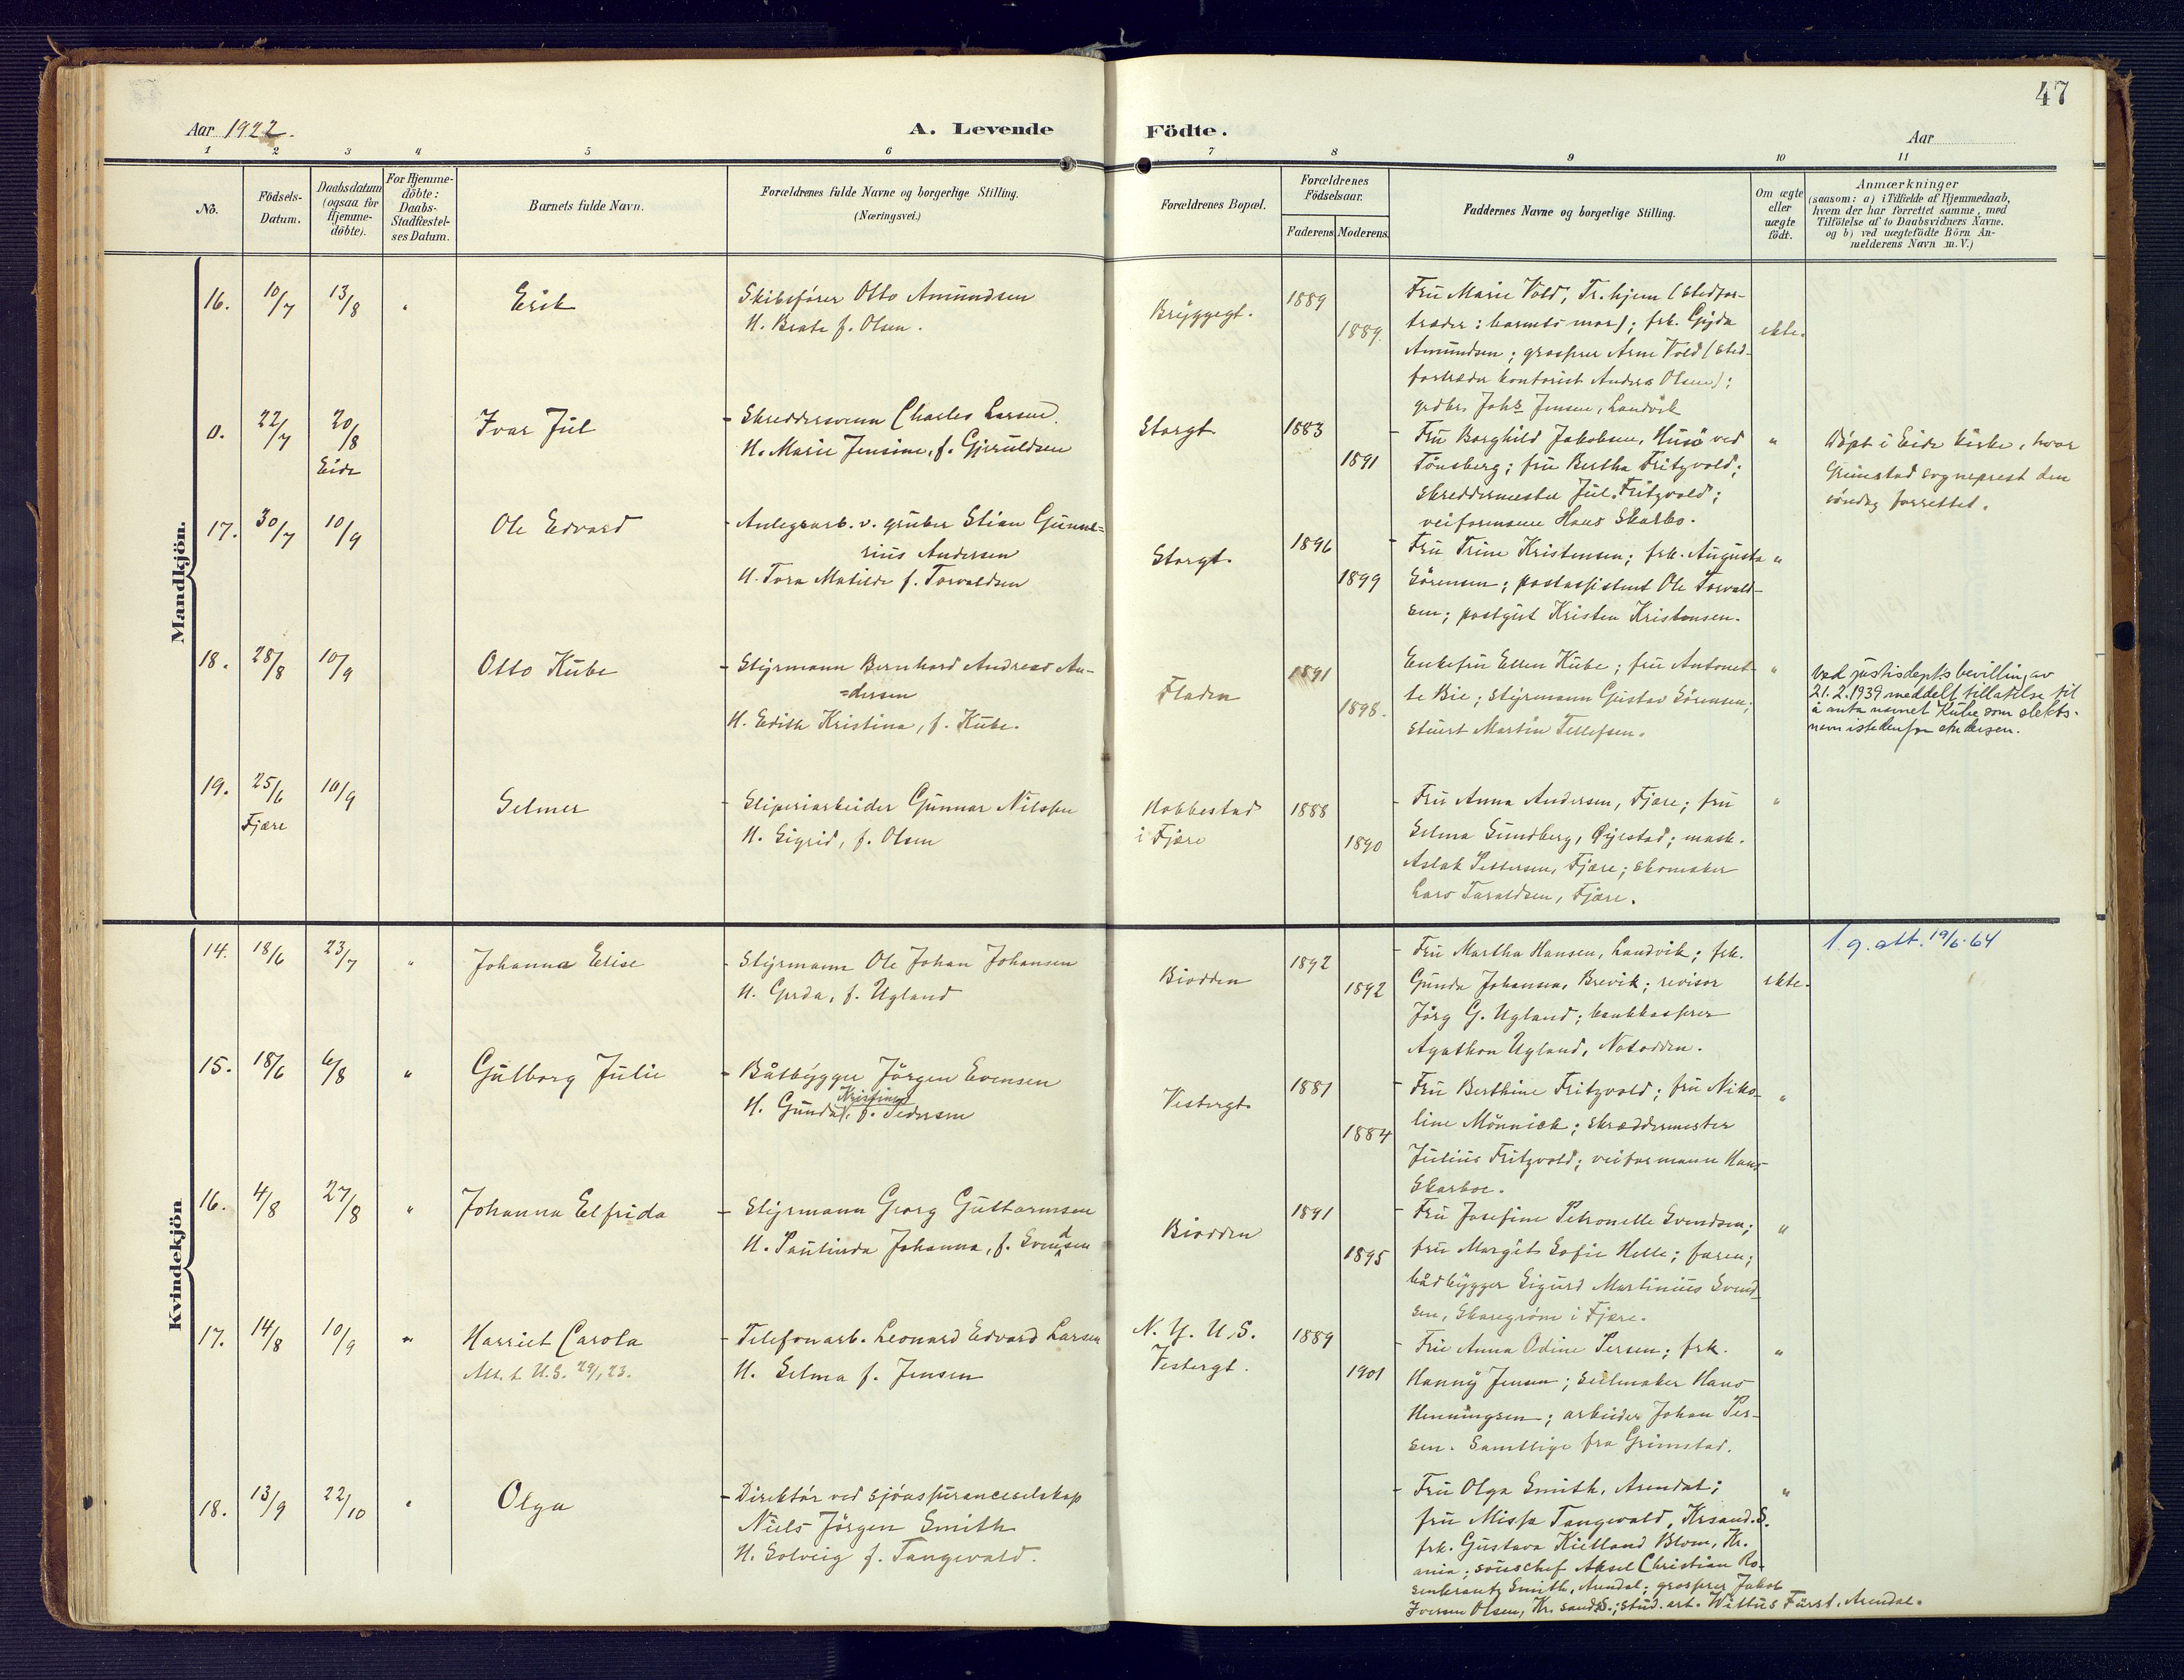 47
Aar 1922.
A. Levende Födte.
Aar
1 2 3 4 5 6 7 8 9 10 11
No.
Födsels-Datum.
Daabsdatum (ogsaa for Hjemme-döbte).
For Hjemme-döbte: Daabs-Stadfæstel-ses Datum.
Barnets fulde Navn.
Forældrenes fulde Navne og borgerlige Stilling.
(Næringsvei.)
Forældrenes Bopæl.
Forældrenes Födselsaar.
Faderens Moderens
Faddernes Navne og borgerlige Stilling.
Om ægte eller uægte födt.
Anmærkninger
(saasom: a) i Tilfælde af Hjemmedaab,
hvem der har forrettet samme, med
Tilföielse af to Daabsvidners Navne.
og b) ved uægtefödte Börn An-
melderens Navn m. V.)
Mandkjön.
16. 10/7 13/8 " Erik
Skibsfører Otto Amundsen
H. Beate f. Olsen.
Bryggegt.
1889
1889.
Fru Marie Vold, Tr.hjem (stedfor-
træder: barnets mor); frk. Gyda
Amundsen; grosserer Arne Vold (sted-
fortræder kontorist Anders Olsen);
grdbr. Johs Jensen, Landvik
ekte.
0. 22/7 20/8 Eide
Ivar Jul
- Skreddersvenn Charles Larsen.
H. Marie Jensine, f. Gjeruldsen
Storgt.
1883
1891
- Fru Borghild Jakobsen, Husø ved
Tönsberg; fru Bertha Fritzvold;
skreddermester Jul. Fritzvold;
veiformann Hans Skarbo.
"
Döpt i Eide kirke, hvor
Grimstad sogneprest den
söndag forrettet.
17. 30/7 10/9
Ole Edvard
- Anlegsarb. v. gruber Stian Gunne-
=rius Andersen
H. Tora Matilde f. Torvaldsen
Storgt.
1896
1899
- Fru Trine Kristensen; frk. Augusta
Sörensen; postassistent Ole Torvald-
sen; postgut Kristen Kristensen.
"
18. 28/8 10/9
Otto Kube
- Styrmann Bernhard Andreas An-
=dersen
H. Edith Kristina, f. Kube.
Fladen
1891
1898.
Enkefru Ellen Kube; fru Antonet-
te Bie; styrmann Gustav Sörensen;
stuert Martin Tellefsen.
"
Ved justisdepts bevilling av
21.2.1939 meddelt tillatelse til
å anta navnet Kube som slekts-
navn istedenfor Andersen.
19. 25/6 Fjære 10/9
Selmer
- Sliperiarbeider Gunnar Nilssen
H. Sigrid, f. Olsen
Nobbestad
i Fjære
1888
1890
- Fru Anna Andersen, Fjære; fru
Selma Sundberg, Øyestad; mask.
Aslak Pettersen, Fjære; skomaker
Lars Taraldsen, Fjære.
"
Kvindekjön
14. 18/6 23/7 "
Johanna Elise
- Styrmann Ole Johan Johansen
H. Gerda, f. Ugland
Biodden
1892
1892
- Fru Martha Hansen, Landvik; frk.
Gunda Johansen, Brevik; revisor
Jörg G. Ugland; bankkasserer
Agathon Ugland, Notodden.
ekte.
1 g. att. 19/6.64
15. 18/6 6/8 "
Gulborg Julie
- Båtbygger Jörgen Evensen
Kristine
H. Gunda, f. Pedersen
Vestergt.
1881
1884
- Fru Berthine Fritzvold; fru Niko-
line Mönnick; skræddermester
Julius Fritzvold; veiformann Hans
Skarboe.
"
16. 4/8 27/8 "
Johanna Elfrida
- Styrmann Georg Guttormsen
H. Paulinda Johanna, f. Svendsen
Biodden
1891
1895
- Fru Josefine Petronelle Svendsen;
fru Margit Sofie Helle; faren;
bådbygger Sigurd Martinius Svend-
sen, Skaregrøm i Fjære.
"
17. 14/8 10/9 "
Harriet Carola
Att. t. U.S. 29/1 23.
- Telefonarb. Leonard Edvard Larsen
H. Selma f. Jensen
N. Y. U.S.
Vestergt.
1889
1901
- Fru Anna Odine Persen; frk.
Hanny Jensen; seilmaker Hans
Henningsen; arbeider Johan Per-
sen. Samtlige fra Grimstad.
"
18. 13/9 22/10 "
Olga
- Direktör ved sjöassuranceselskap
Niels Jörgen Smith
H. Solveig f. Tangevald.
- Fru Olga Smith, Arendal;
fru Missa Tangevald, Krsand.S.
frk. Gustava Kielland Blom, Kr.
ania; souschef Aksel Christian Ro-
senkrantz Smith, Arendal; grosserer Jakob
Iversen Olsen, Kr.sand S.; stud. art. Wittus Fürst, Arendal.
"